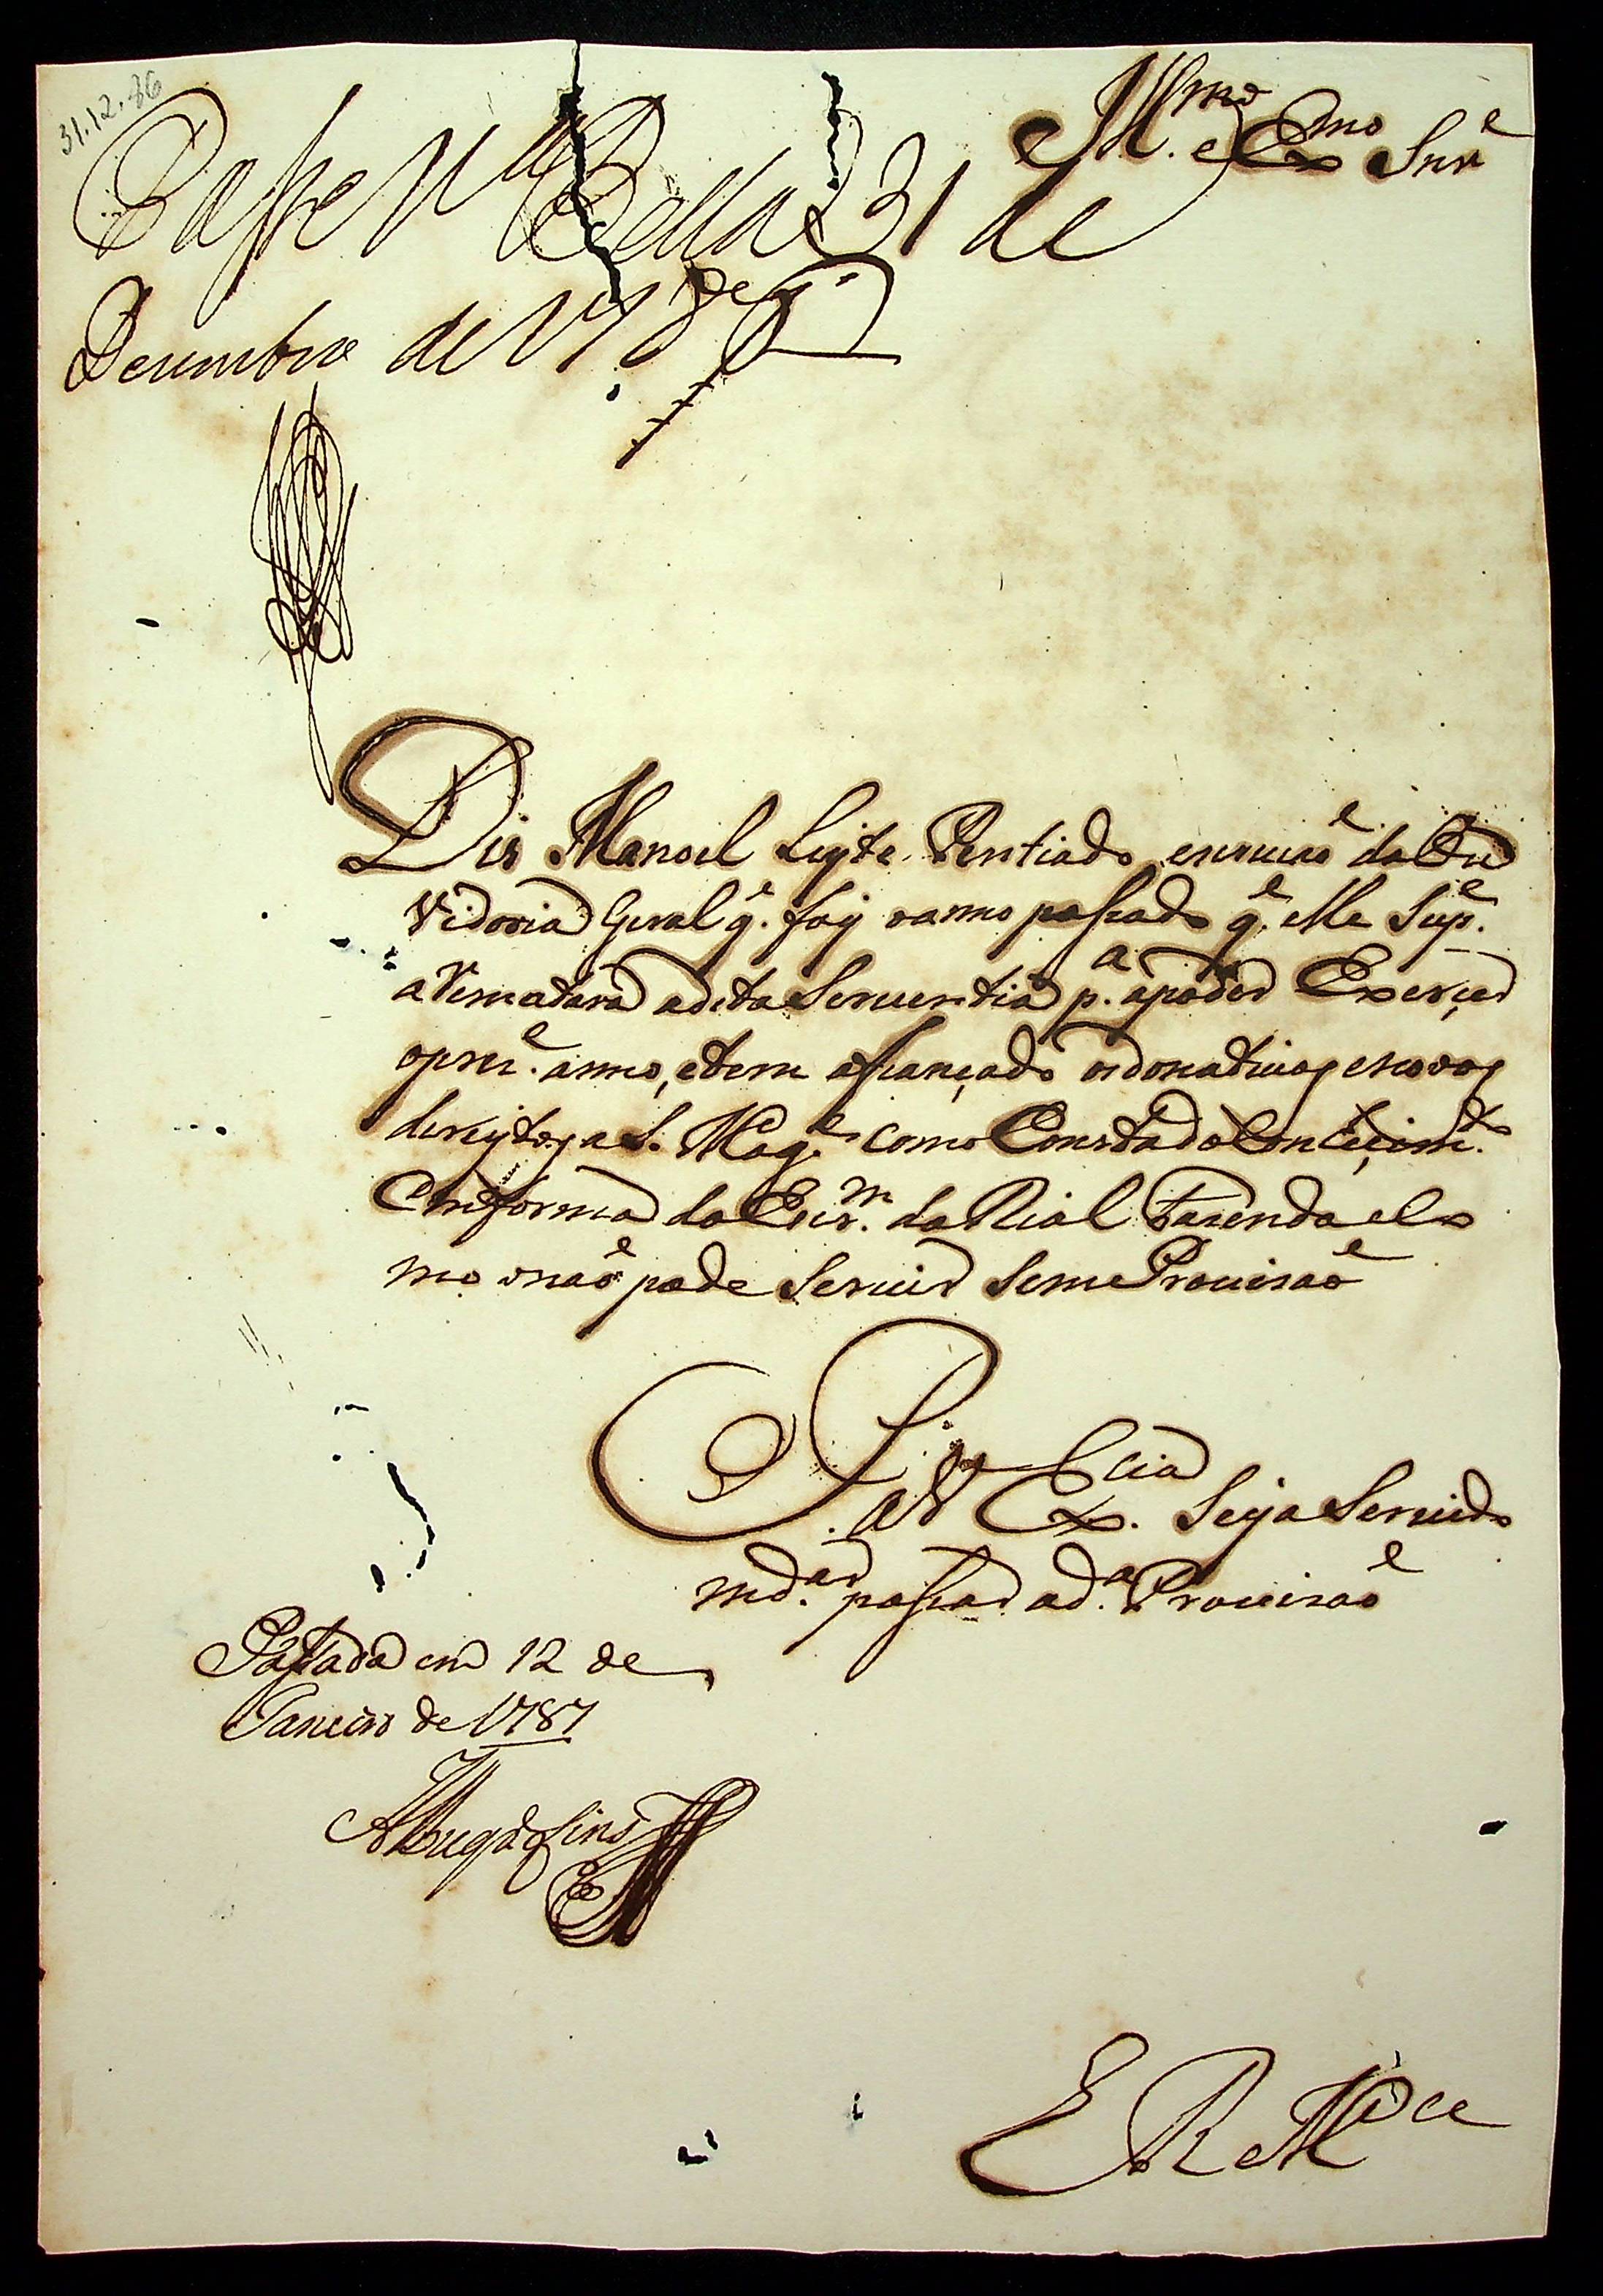 31.12.86
Ill.mo e Ex.mo Snr̃
Passe V.a Bella 31 de
Dezembro de 1786
Dis Manoel Leyte Pentiado escrivaõ da Ou
vidoria Geral q̃. foy o anno passado q̃. elle Sup.e
a Rematara a dita Serventia p.a a poder Exerçer
o prez.e anno, e tem afiançado os donativos e novos
dereytos a S. Mag.e como Consta do Conheçim.to
Em forma da Escr.m da Rial Fazenda e Co
mo o naõ pode Servir sem Provisaõ
P. a V Ex.cia Seja Servido
md.ar passar a d.a Provisaõ
Passada em 12 de
Janeiro de 1787
E R M.ce